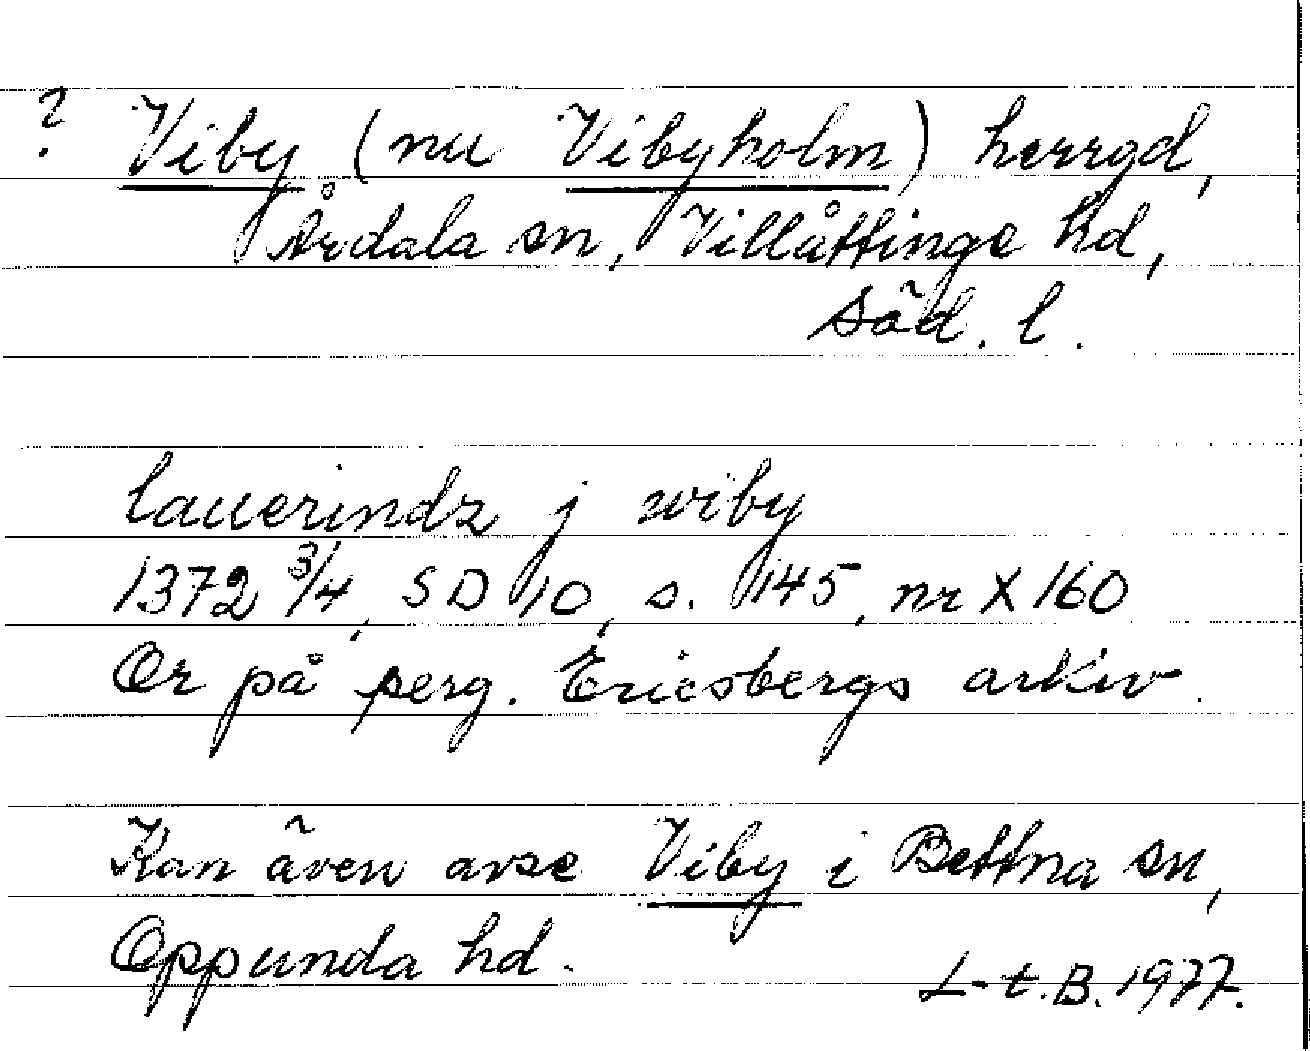 ? Viby (nu Vibyholm) herrgd,
Årdala sn, Villåttinge hd,
Söd. l.
lauerindz j wiby
1372 3/4, SD 10, s. 145, nr X 160
Or på perg. Ericsbergs arkiv.
Kan även avse Viby i Bettna sn,
Oppunda hd.
L-t.B. 1977.